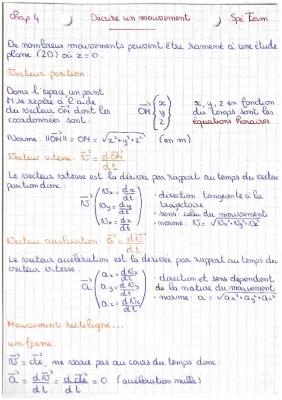 Chap 4 Décrire un mouvement Spé
De nombreux mouvements peuvent être ramené à une étude
plane (2D) où z=0.
Vecteur position.
Dans l'espace un point
M se repère à l'aide
du vecteur OM dont les
coordonnées sont :
OM { x y z
x, y, z en fonction
du temps sont les
équations horaires.
Norme : ||OM|| = OM = √x²+y²+z² (en m)
Vecteur vitesse : v = dOM/dt
Le vecteur vitesse est la dérivée par rapport au temps du vecteur
position donc :
v ( vx = dx/dt vy = dy/dt vz = dz/dt
· direction : tangente à la
trajectoire
· sens : celui du mouvement
· norme : v = √vx²+vy²+vz²
Vecteur accélération : a = dv/dt
Le vecteur accélération est la dérivée par rapport au temps du
vecteur vitesse :
a ( ax = dvx/dt ay = dvy/dt az = dvz/dt
· direction et sens dépendent
de la nature du mouvement
· norme : a = √ax²+ay²+az²
Mouvement rectiligne...
uniforme
v = cte, ne varie pas au cours du temps donc :
a = dv/dt = dcte/dt = 0 (accélération nulle)